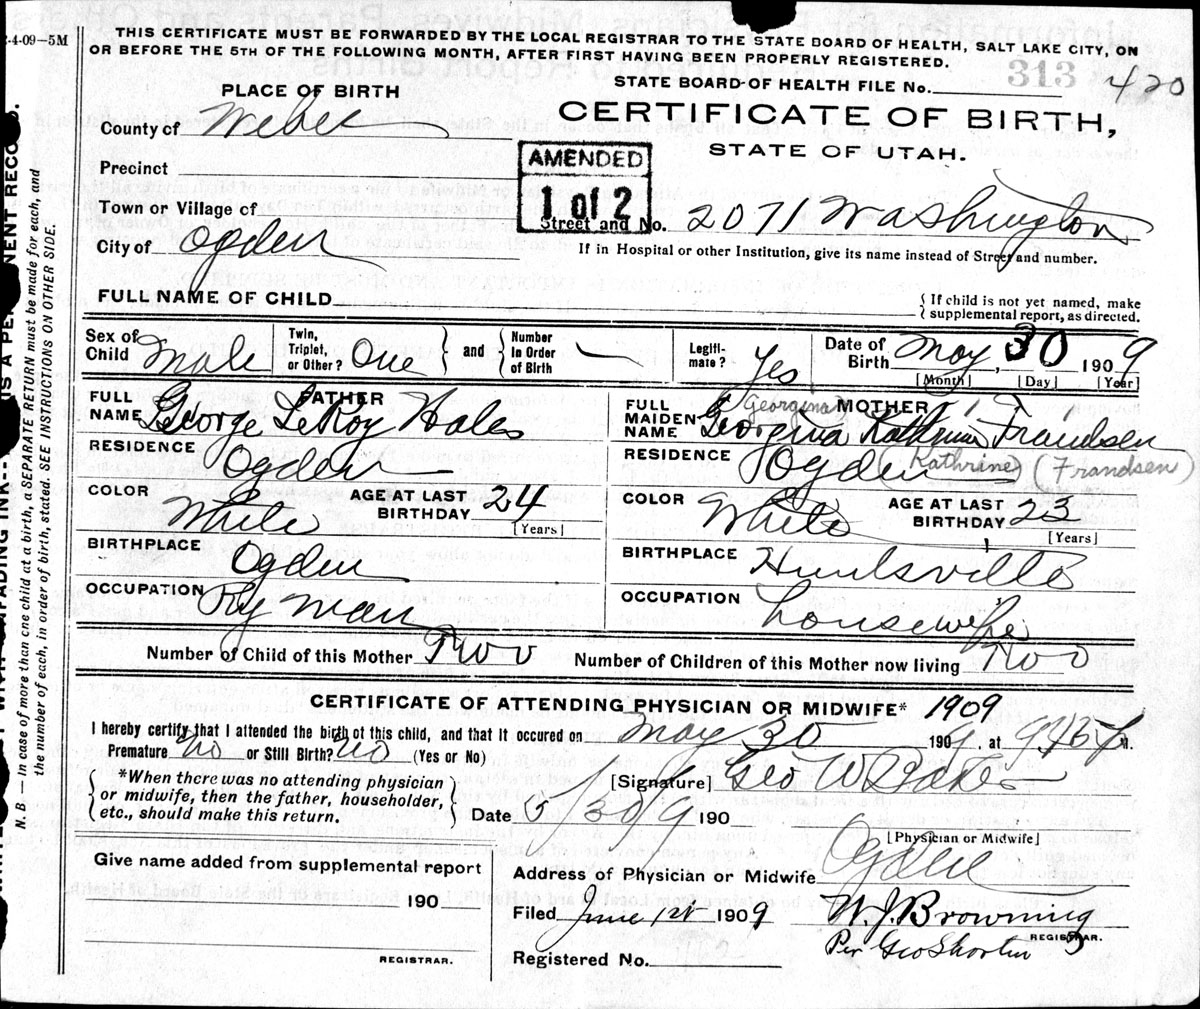 -4-09-5M
THIS CERTIFICATE MUST BE FORWARDED BY THE LOCAL REGISTRAR TO THE STATE BOARD OF HEALTH, SALT LAKE CITY, ON
OR BEFORE THE 5TH OF THE FOLLOWING MONTH, AFTER FIRST HAVING BEEN PROPERLY REGISTERED.
313
420
STATE BOARD OF HEALTH FILE No.
PLACE OF BIRTH
CERTIFICATE OF BIRTH,
STATE OF UTAH.
County of Weber
AMENDED
1 of 2
Precinct
Town or Village of
Street and No. 2071 Washington
City of Ogden
If in Hospital or other Institution, give its name instead of Street and number.
FULL NAME OF CHILD
{ If child is not yet named, make
supplemental report, as directed.
Sex of Child Male Twin, Triplet, or Other? One } and { Number In Order of Birth — Legiti-mate? Yes Date of Birth May, 30 1909
[Month] [Day] [Year]
FATHER
FULL NAME George LeRoy Hales
RESIDENCE Ogden
COLOR White AGE AT LAST BIRTHDAY 24
[Years]
BIRTHPLACE Ogden
OCCUPATION Ry man
MOTHER
(Georgina)
FULL MAIDEN NAME Georgina Kathrine Frandsen
RESIDENCE Ogden (Kathrine) (Frandsen)
COLOR White AGE AT LAST BIRTHDAY 23
[Years]
BIRTHPLACE Huntsville
OCCUPATION housewife
Number of Child of this Mother Two Number of Children of this Mother now living Two
CERTIFICATE OF ATTENDING PHYSICIAN OR MIDWIFE* 1909
I hereby certify that I attended the birth of this child, and that it occured on May 30 1909, at M.
Premature No or Still Birth? No (Yes or No)
{ *When there was no attending physician
or midwife, then the father, householder,
etc., should make this return. }
[Signature] Geo W
Date 5/30/9 190
[Physician or Midwife]
Give name added from supplemental report
190
REGISTRAR.
Address of Physician or Midwife Ogden
Filed June 1st 1909 W. J. Browning
REGISTRAR.
Per Geo Shorten
Registered No.
N. B.—In case of more than one child at a birth, a SEPARATE RETURN must be made for each, and
the number of each, in order of birth, stated. SEE INSTRUCTIONS ON OTHER SIDE.